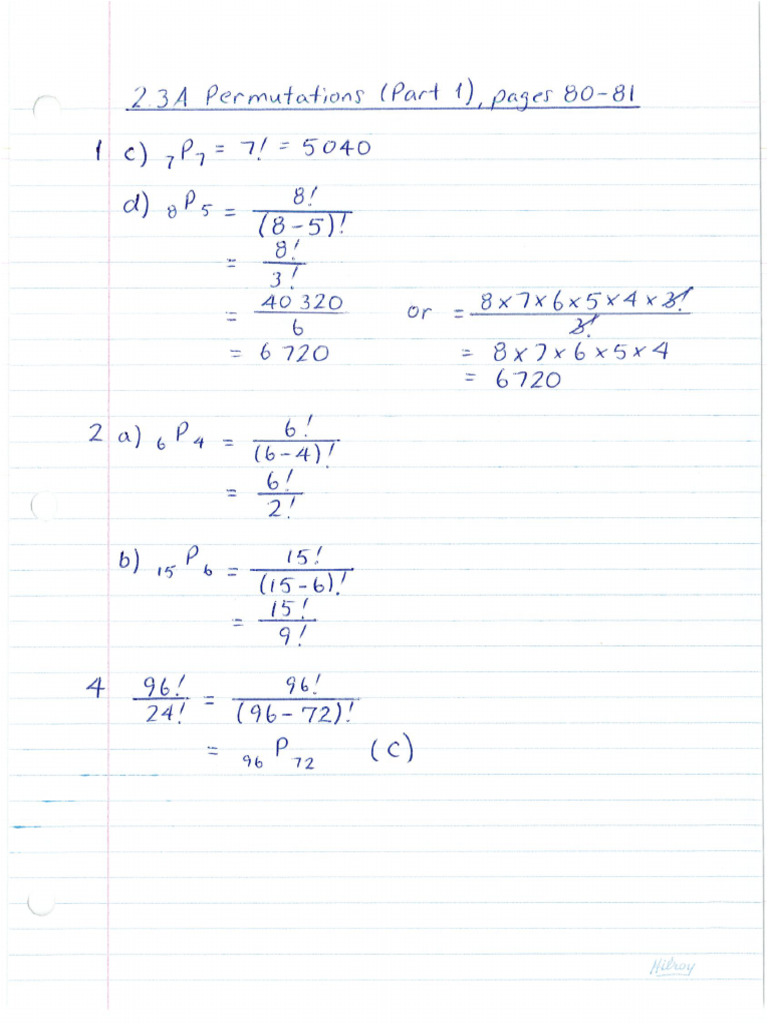 2.3A Permutations (Part 1), pages 80-81
1 c) ₇P₇ = 7! = 5040
d) ₈P₅ = 8!/(8-5)!
= 8!/3!
= 40 320/6 or = 8×7×6×5×4×3!/3!
= 6 720 = 8×7×6×5×4
= 6720
2 a) ₆P₄ = 6!/(6-4)!
= 6!/2!
b) ₁₅P₆ = 15!/(15-6)!
= 15!/9!
4 96!/24! = 96!/(96-72)!
= ₉₆P₇₂ (C)
Hilroy